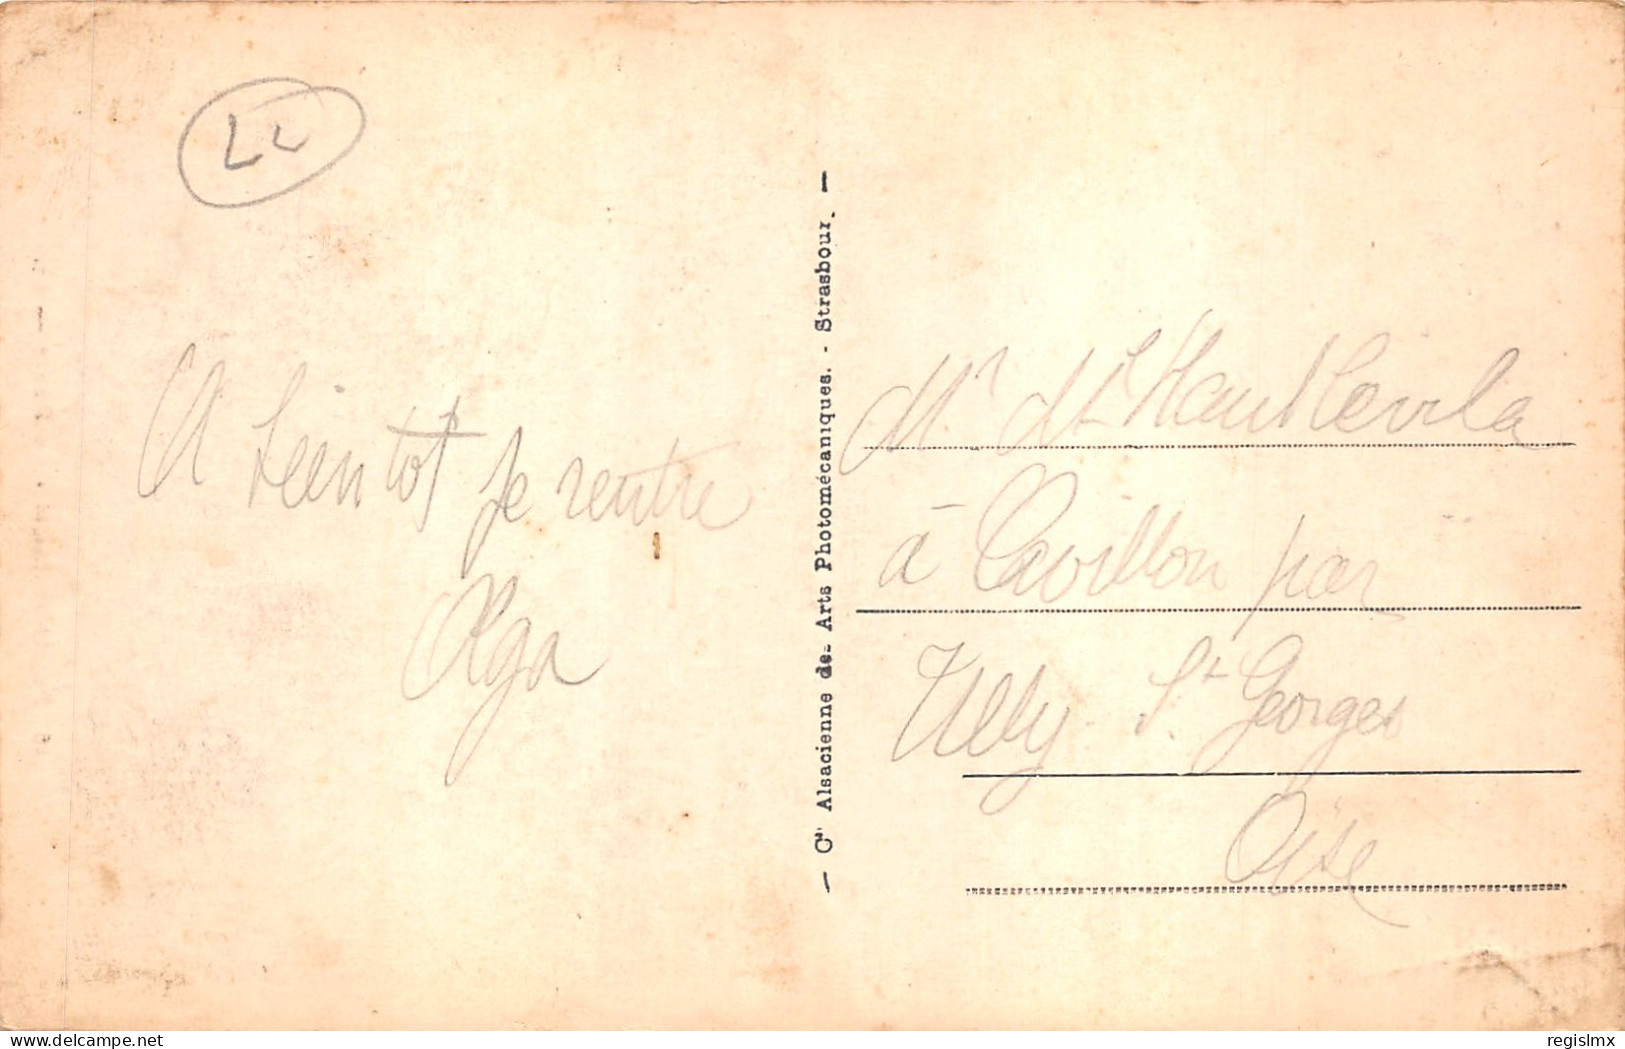 LL
A bientot je rentre
Olga
— Cie Alsacienne des Arts Photomécaniques. - Strasbour. —
Mr
à Cavillon par
Ully St Georges
Oise
www.delcampe.net
regislmx